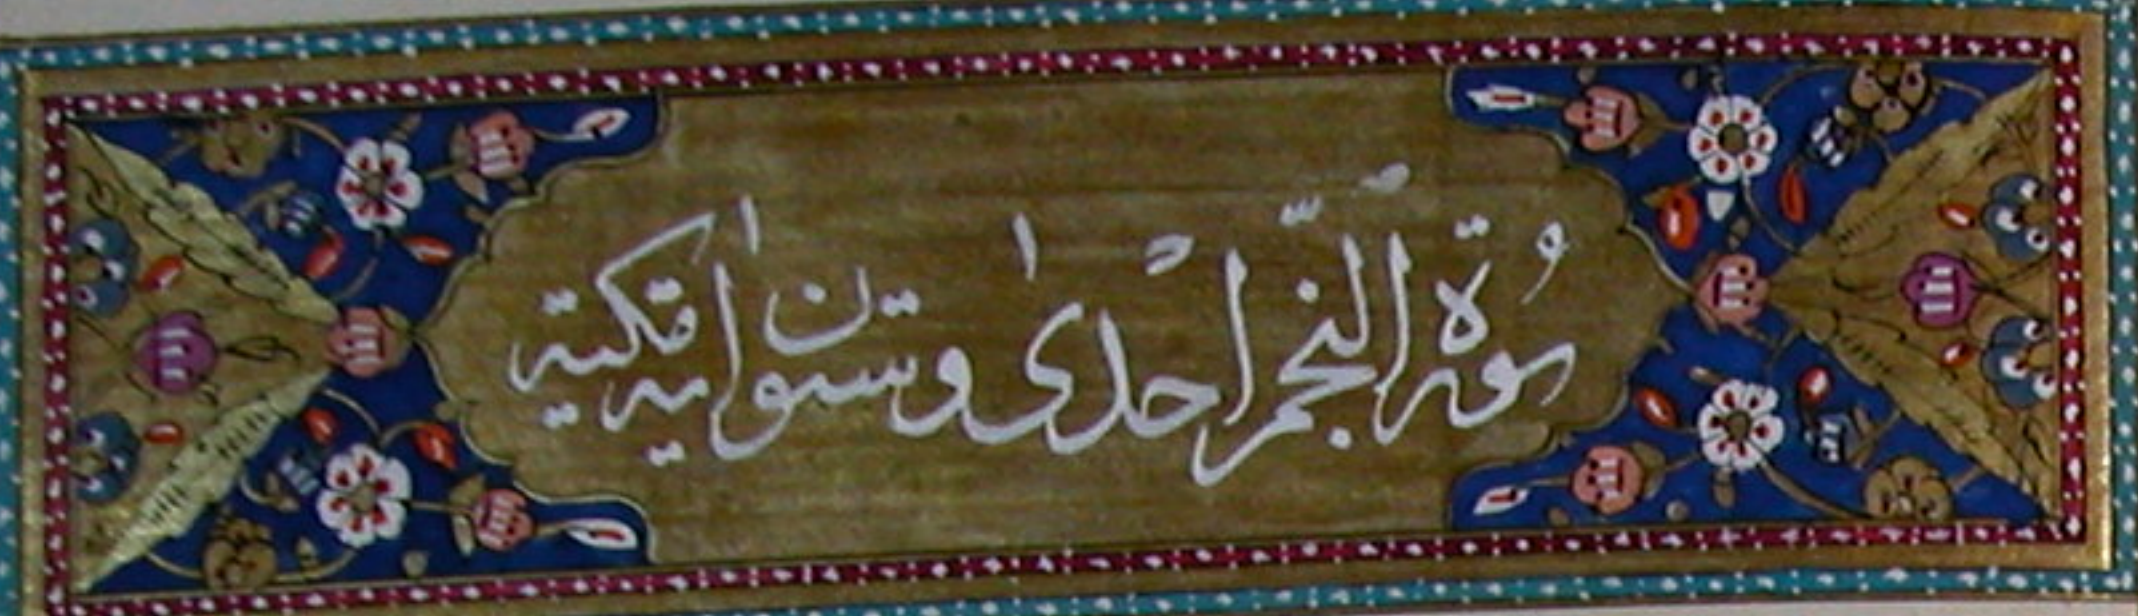 سورة النجم احدى وستون اية مكية